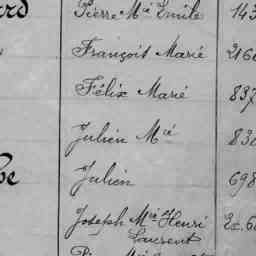 Pierre Mie Emile 143
François Marie 2166
Félix Marie 837
Julien Mie 830
Julien 698
Joseph Mie Henri
Laurent